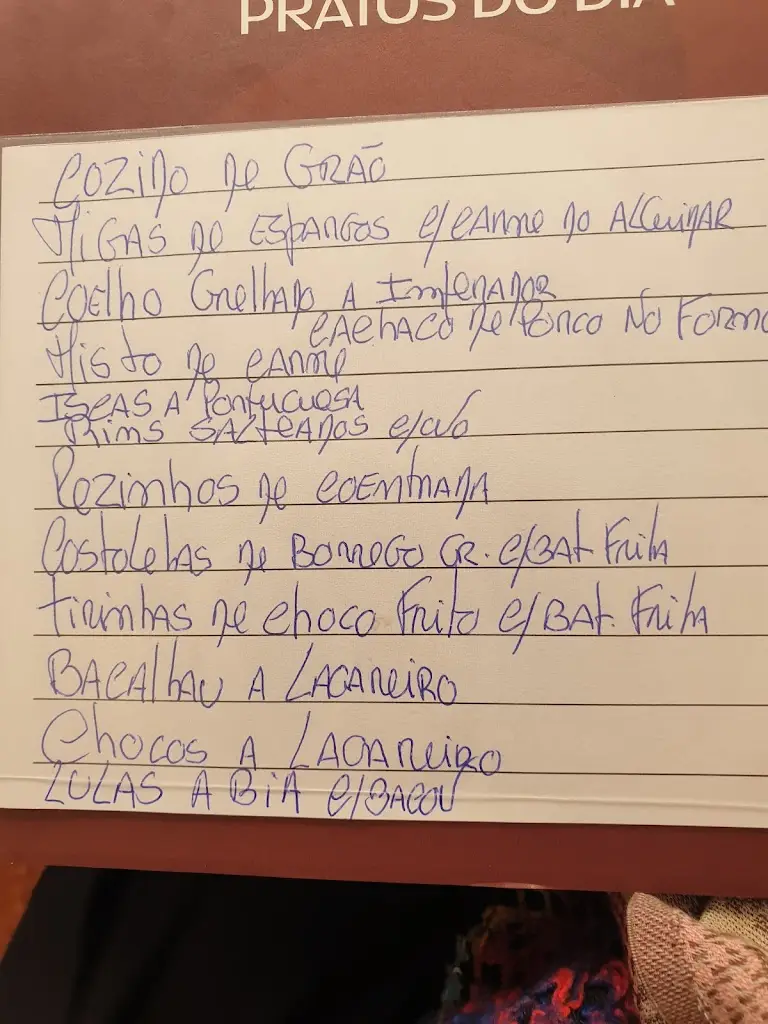 PRATOS DO DIA
COZIDO DE GRÃO
MIGAS DE ESPARGOS C/CARNE DO ALGUIDAR
COELHO GRELHADO A IMPERADOR
CACHAÇO DE PORCO NO FORNO
MISTO DE CARNE
ISCAS A PORTUGUESA
RINS SALTEADOS C/OVO
PEZINHOS DE COENTRADA
COSTOLETAS DE BORREGO GR. C/BAT FRITA
TIRINHAS DE CHOCO FRITO C/BAT. FRITA
BACALHAU A LAGAREIRO
CHOCOS A LAGAREIRO
LULAS A BIA C/BACON